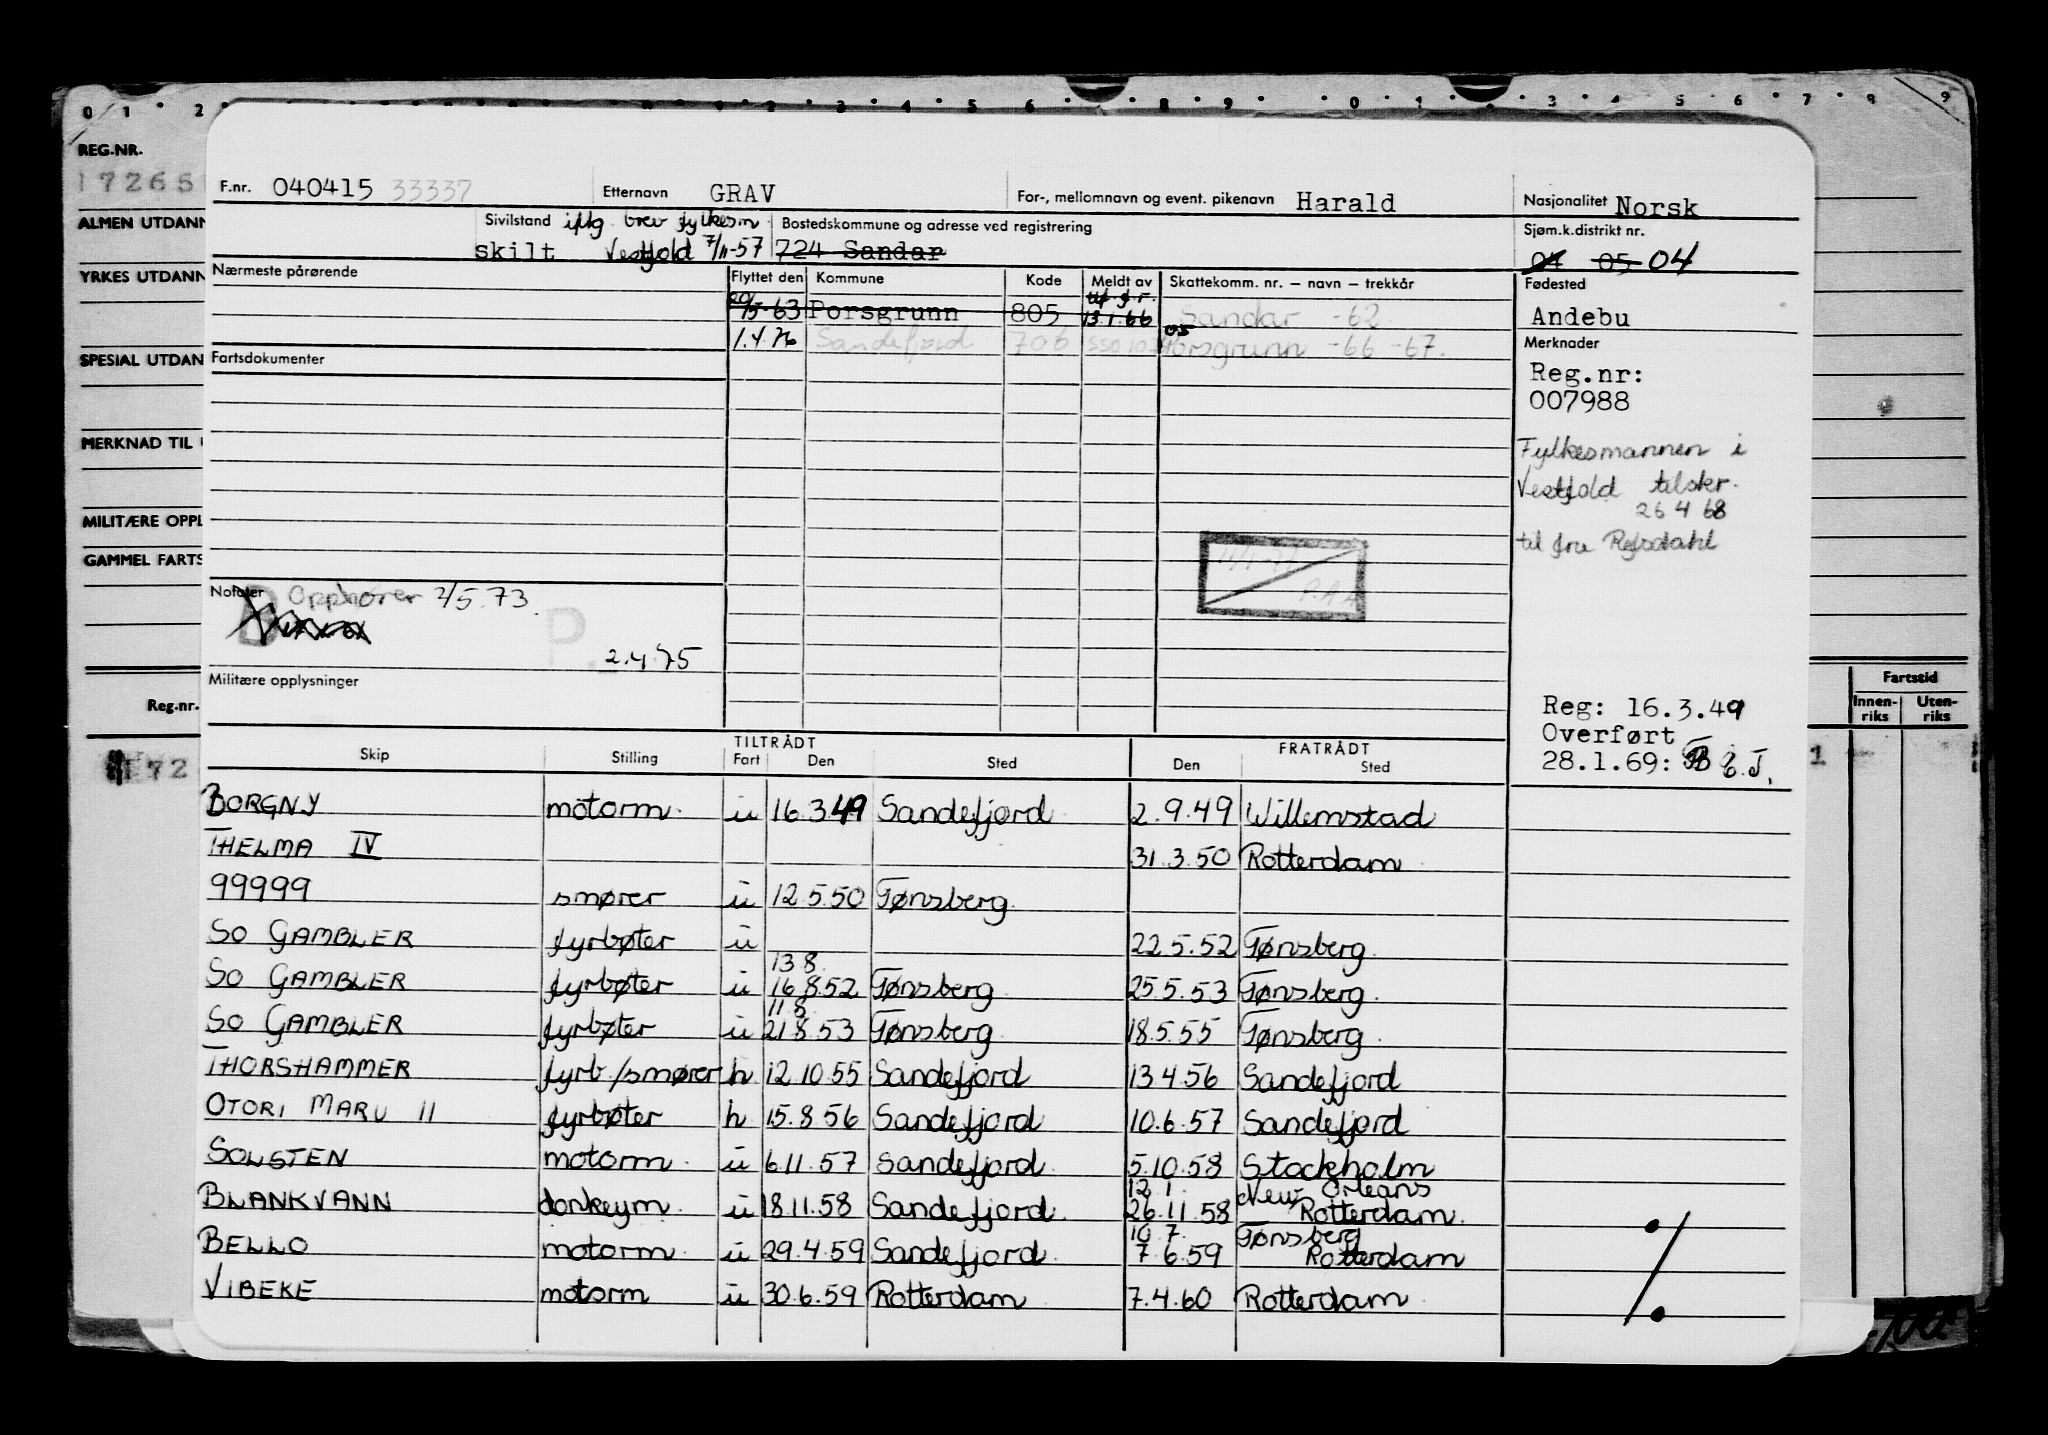 0 1 2 2 3 4 5 6 8 9 0 1 3 4 5 6 7 8 9
REG.NR.
17265
ALMEN UTDANN
YRKES UTDANN
SPESIAL UTDAN
MERKNAD TIL
MILITÆRE OPPL
GAMMEL FARTS
Reg.nr.
72
Fartstid
Innen-riks Uten-riks
1
F.nr. 040415 33337 Etternavn GRAV For-, mellomnavn og event. pikenavn Harald Nasjonalitet Norsk
Sivilstand iflg. brev fylkesm. Bostedskommune og adresse ved registrering Sjøm.k.distrikt nr.
skilt Vestfold 7/11-57 724 Sandar 04 05 04
Nærmeste pårørende Flyttet den Kommune Kode Meldt av Skattekomm. nr. – navn – trekkår Fødested
20/5-63 Porsgrunn 805 13.1.66 Sandar -62 Andebu
1.4.76 Sandefjord 706 05 Porsgrunn -66 -67. Merknader
Fartsdokumenter
Reg.nr:
007988
Fylkesmannen i
Vestfold tilskr.
26 4 68
til fru Refsdahl
P.A.A
Notater B Opphører 2/5.73.
P. 2.4.75
Militære opplysninger
Reg: 16.3.49
Overført
28.1.69: E.J.
TILTRÅDT FRATRÅDT
Skip Stilling Fart Den Sted Den Sted
BORGNY motorm. u 16.3.49 Sandefjord 2.9.49 Willemstad
THELMA IV 31.3.50 Rotterdam
99999 smører u 12.5.50 Tønsberg
SO GAMBLER fyrbøter u 22.5.52 Tønsberg
13 8.
SO GAMBLER fyrbøter u 16.8.52 Tønsberg 25.5.53 Tønsberg
11.8.
SO GAMBLER fyrbøter u 21.8.53 Tønsberg 18.5.55 Tønsberg
THORSHAMMER fyrb./smører h 12.10.55 Sandefjord 13.4.56 Sandefjord
OTORI MARU 11 fyrbøter h 15.8.56 Sandefjord 10.6.57 Sandefjord
SOLSTEN motorm. u 6.11.57 Sandefjord 5.10.58 Stockholm
12.1. New Orleans
BLANKVANN donkeym. u 18.11.58 Sandefjord 26.11.58 Rotterdam
10.7. Tønsberg
BELLO motorm. u 29.4.59 Sandefjord 7.6.59 Rotterdam
VIBEKE motorm u 30.6.59 Rotterdam 7.4.60 Rotterdam
%